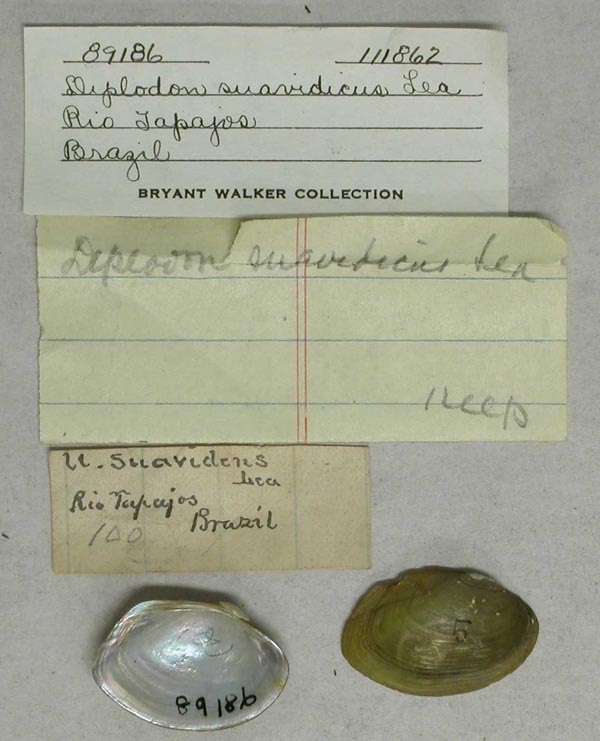 89186 111862
Diplodon suavidicus Lea
Rio Tapajos
Brazil
BRYANT WALKER COLLECTION
Deplodon suavidicus Lea
Keep
U. Suavidens
Lea
Rio Tapajos
Brazil
100
5
89186